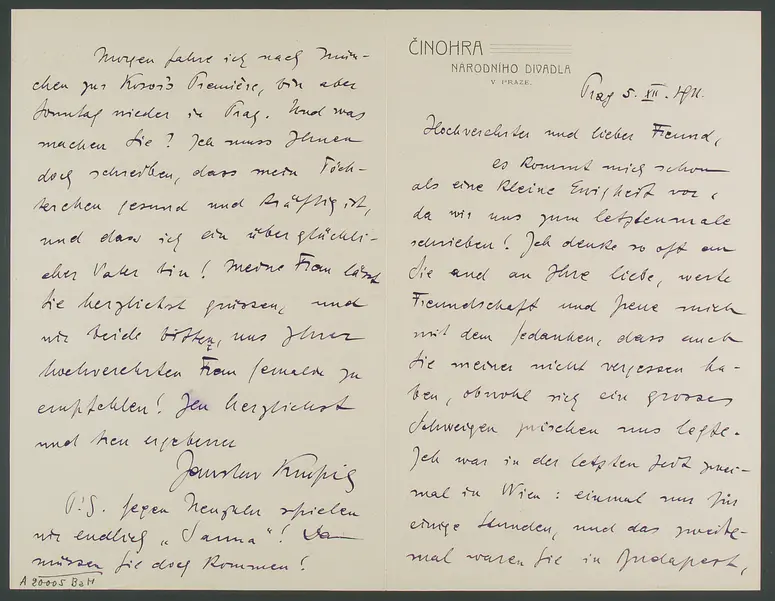 ČINOHRA
NÁRODNÍHO DIVADLA
V PRAZE.
Prag 5. XII. 1911.
Hochverehrter und lieber Freund,
es kommt mich schon
als eine kleine Ewigkeit vor,
da wir uns zum letztenmale
schrieben! Ich denke so oft an
Sie und an Ihre liebe, werte
Freundschaft und freue mich
mit dem Gedanken, dass auch
Sie meiner nicht vergessen ha-
ben, obwohl sich ein grosses
Schweigen zwischen uns legte.
Ich war in der letzten Zeit zwei-
mal in Wien: einmal nur für
einige Stunden, und das zweite-
mal waren Sie in Budapest,
Morgen fahre ich nach Mün-
chen zur Première, bin aber
Sonntag wieder in Prag. Und was
machen Sie? Ich muss Ihnen
doch schreiben, dass mein Töch-
terchen gesund und kräftig ist,
und dass ich ein überglückli-
cher Vater bin! Meine Frau lässt
Sie herzlichst grüssen, und
wir beide bitten, uns Ihrer
hochverehrten Frau Gemalin zu
empfehlen! Ihr herzlichst
und treu ergebener
Jaroslav Kvapil
P.S. Gegen Neujahr spielen
wir endlich „Sanna"! Da
müssen Sie doch kommen!
A 20005 BaM